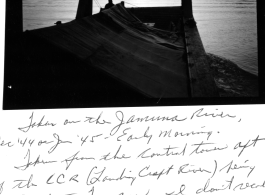 Taken on the Jamuna River,
Dec '44 or Jan '45 - Early Morning.
Taken from the control tower aft
of the LCR (Landing Craft River) being
I don't